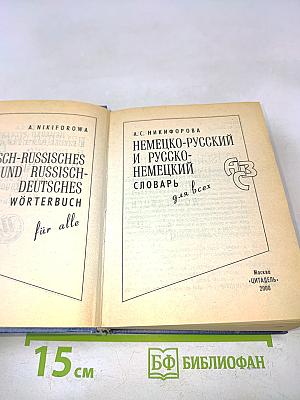 A. NIKIFOROWA
SCH-RUSSISCHES
UND RUSSISCH-
DEUTSCHES
WÖRTERBUCH
für alle
А.С. НИКИФОРОВА
НЕМЕЦКО-РУССКИЙ
И РУССКО-
НЕМЕЦКИЙ
СЛОВАРЬ
для всех
Москва
«ЦИТАДЕЛЬ»
2000
15 СМ
БФ БИБЛИОФАН